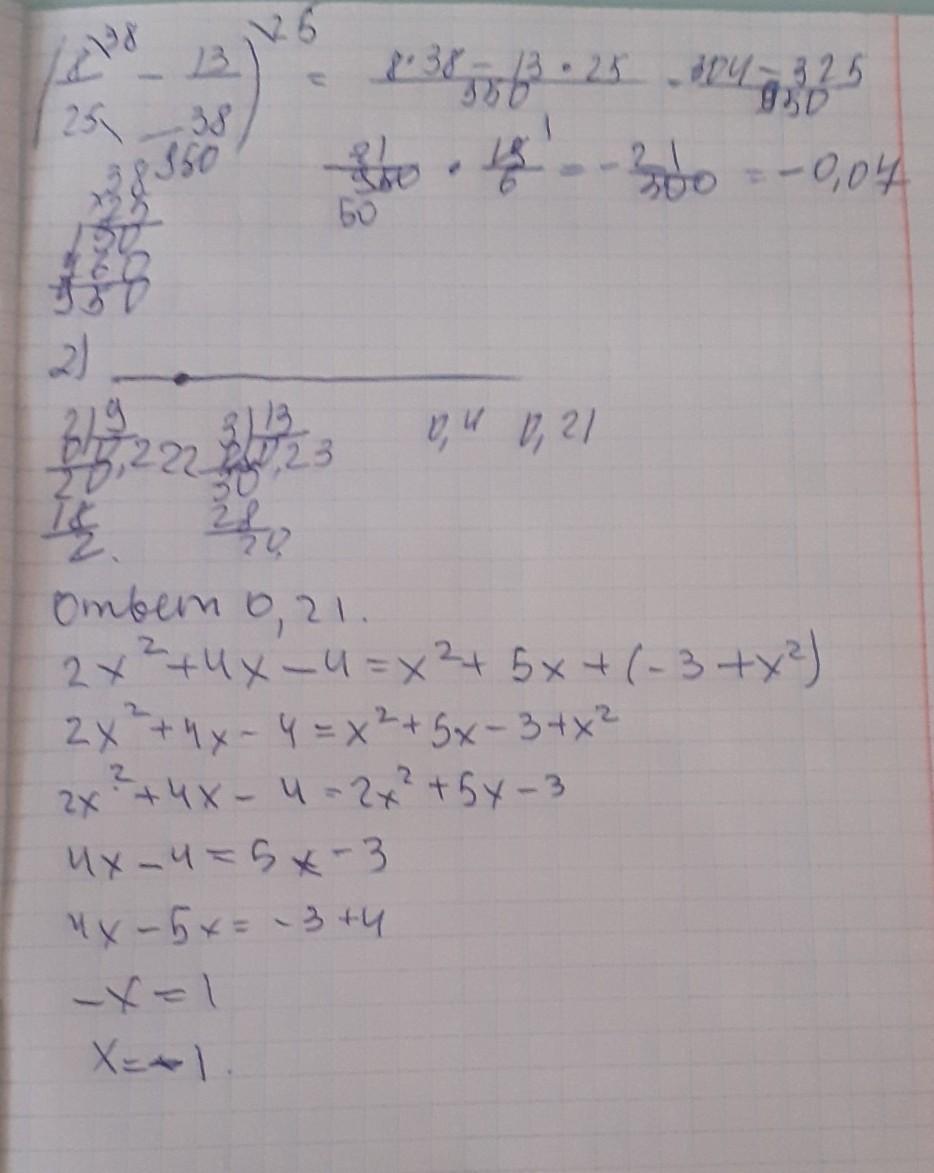 (8\38/25 − 13/38)\25 = 8·38−13·25/950 - 304−325/950
950
21/950 · 19/6 = −21/300 = −0,07
50
1
38
×25
190
760
950
2)
2|9 3|13 0,4 0,21
0|0,222 0|0,23
20 30
18 28
2. 20
Ответ 0,21.
2x²+4x−4=x²+5x+(−3+x²)
2x²+4x−4=x²+5x−3+x²
2x²+4x−4=2x²+5x−3
4x−4=5x−3
4x−5x=−3+4
−x=1
x=−1.